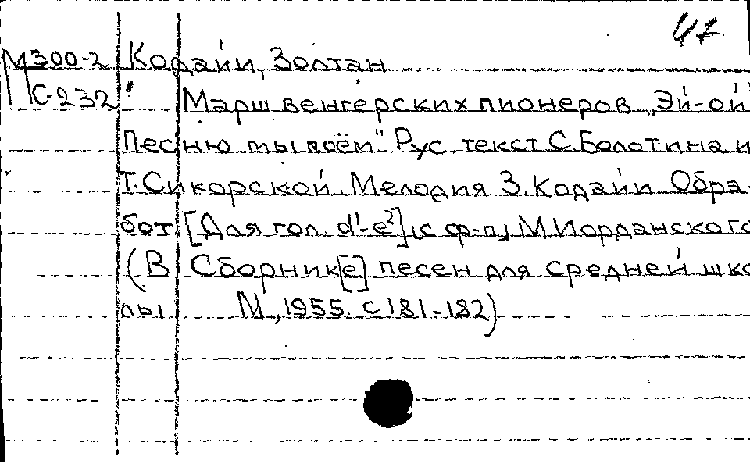 47
М300-2 Кодайи, Золтан
С-232 Марш венгерских пионеров „Эй-ой
песню мы поём". Рус. текст С. Болотина и
Т. Сикорской. Мелодия З. Кодайи. Обра-
бот. [Для гол. d¹-e²], с ф-п, М. Иорданского
(В Сборник[е] песен для средней шко-
лы М., 1955. с 181-182)